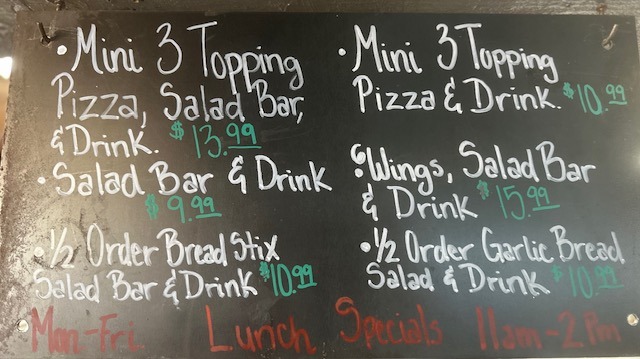 • Mini 3 Topping
Pizza, Salad Bar,
& Drink. $13.99
• Salad Bar & Drink
$9.99
• 1/2 Order Bread Stix
Salad Bar & Drink $10.99
• Mini 3 Topping
Pizza & Drink. $10.99
• 6 Wings, Salad Bar
& Drink $15.99
• 1/2 Order Garlic Bread
Salad & Drink $10.99
Mon-Fri Lunch Specials 11am-2pm